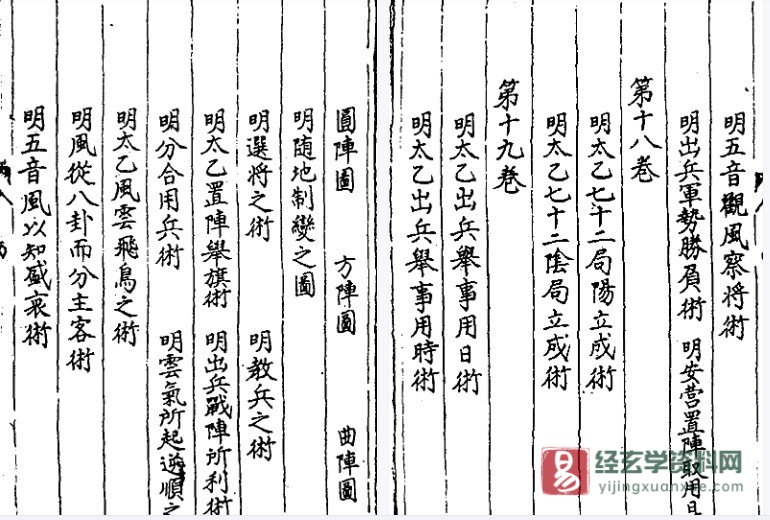 明五音觀風察將術
明出兵軍勢勝負術 明安营置陣取用日
第十八卷
明太乙七十二局陽立成術
明太乙七十二陰局立成術
第十九卷
明太乙出兵舉事用日術
明太乙出兵舉事用時術
圓陣圖 方陣圖 曲陣圖
明随地制變之圖
明選将之術 明教兵之術
明太乙置陣舉旗術 明出兵戰陣所利術
明分合用兵術 明雲氣所起逆順之
明太乙風雲飛鳥之術
明風從八卦而分主客術
明五音風以知盛衰術
易 经玄学资料网
yijingxuanxue.com